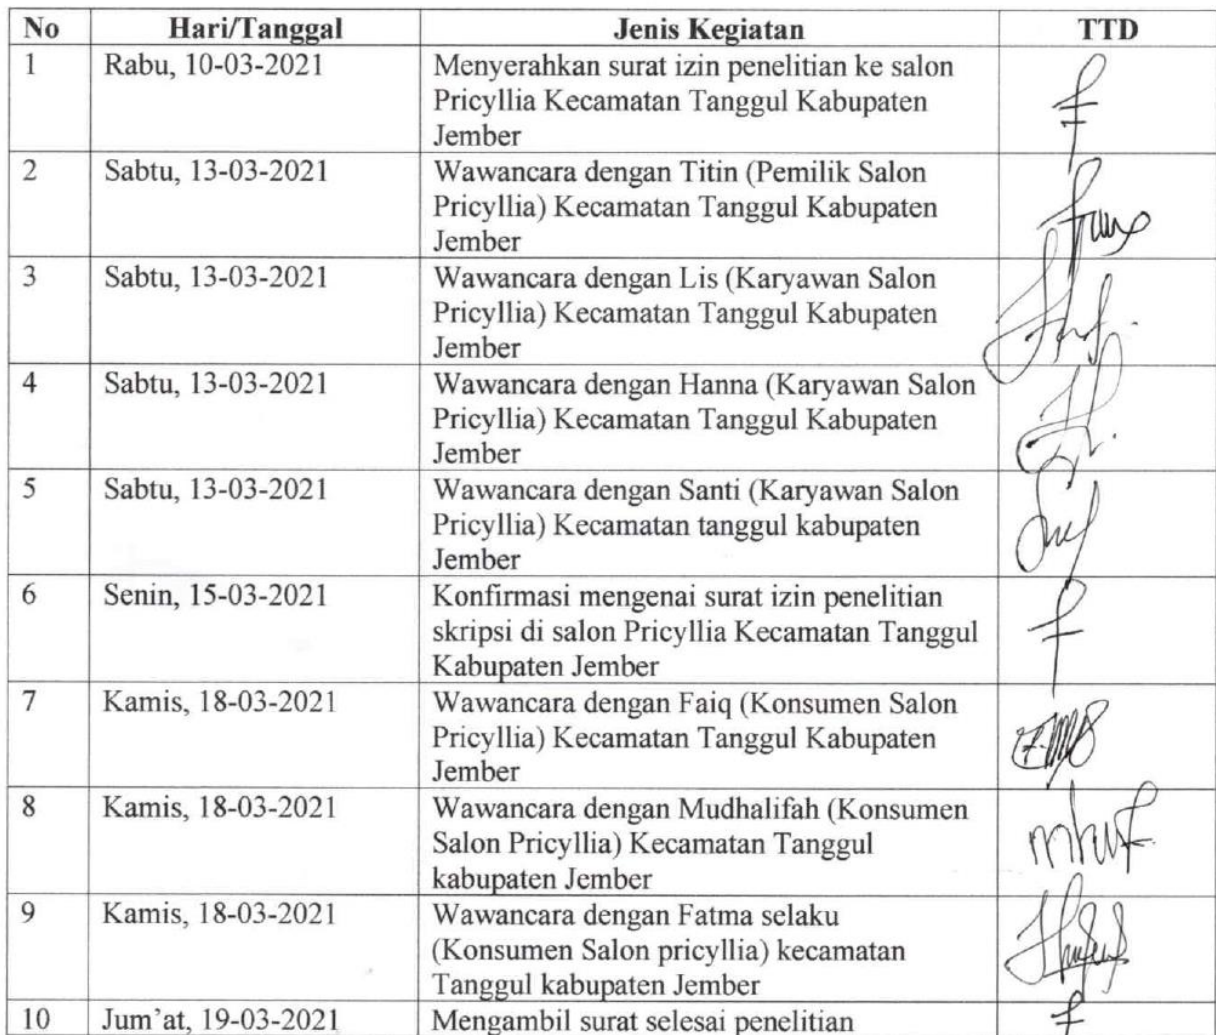 No Hari/Tanggal Jenis Kegiatan TTD
1 Rabu, 10-03-2021 Menyerahkan surat izin penelitian ke salon
Pricyllia Kecamatan Tanggul Kabupaten
Jember
2 Sabtu, 13-03-2021 Wawancara dengan Titin (Pemilik Salon
Pricyllia) Kecamatan Tanggul Kabupaten
Jember
3 Sabtu, 13-03-2021 Wawancara dengan Lis (Karyawan Salon
Pricyllia) Kecamatan Tanggul Kabupaten
Jember
4 Sabtu, 13-03-2021 Wawancara dengan Hanna (Karyawan Salon
Pricyllia) Kecamatan Tanggul Kabupaten
Jember
5 Sabtu, 13-03-2021 Wawancara dengan Santi (Karyawan Salon
Pricyllia) Kecamatan tanggul kabupaten
Jember
6 Senin, 15-03-2021 Konfirmasi mengenai surat izin penelitian
skripsi di salon Pricyllia Kecamatan Tanggul
Kabupaten Jember
7 Kamis, 18-03-2021 Wawancara dengan Faiq (Konsumen Salon
Pricyllia) Kecamatan Tanggul Kabupaten
Jember
8 Kamis, 18-03-2021 Wawancara dengan Mudhalifah (Konsumen
Salon Pricyllia) Kecamatan Tanggul
kabupaten Jember
9 Kamis, 18-03-2021 Wawancara dengan Fatma selaku
(Konsumen Salon pricyllia) kecamatan
Tanggul kabupaten Jember
10 Jum'at, 19-03-2021 Mengambil surat selesai penelitian